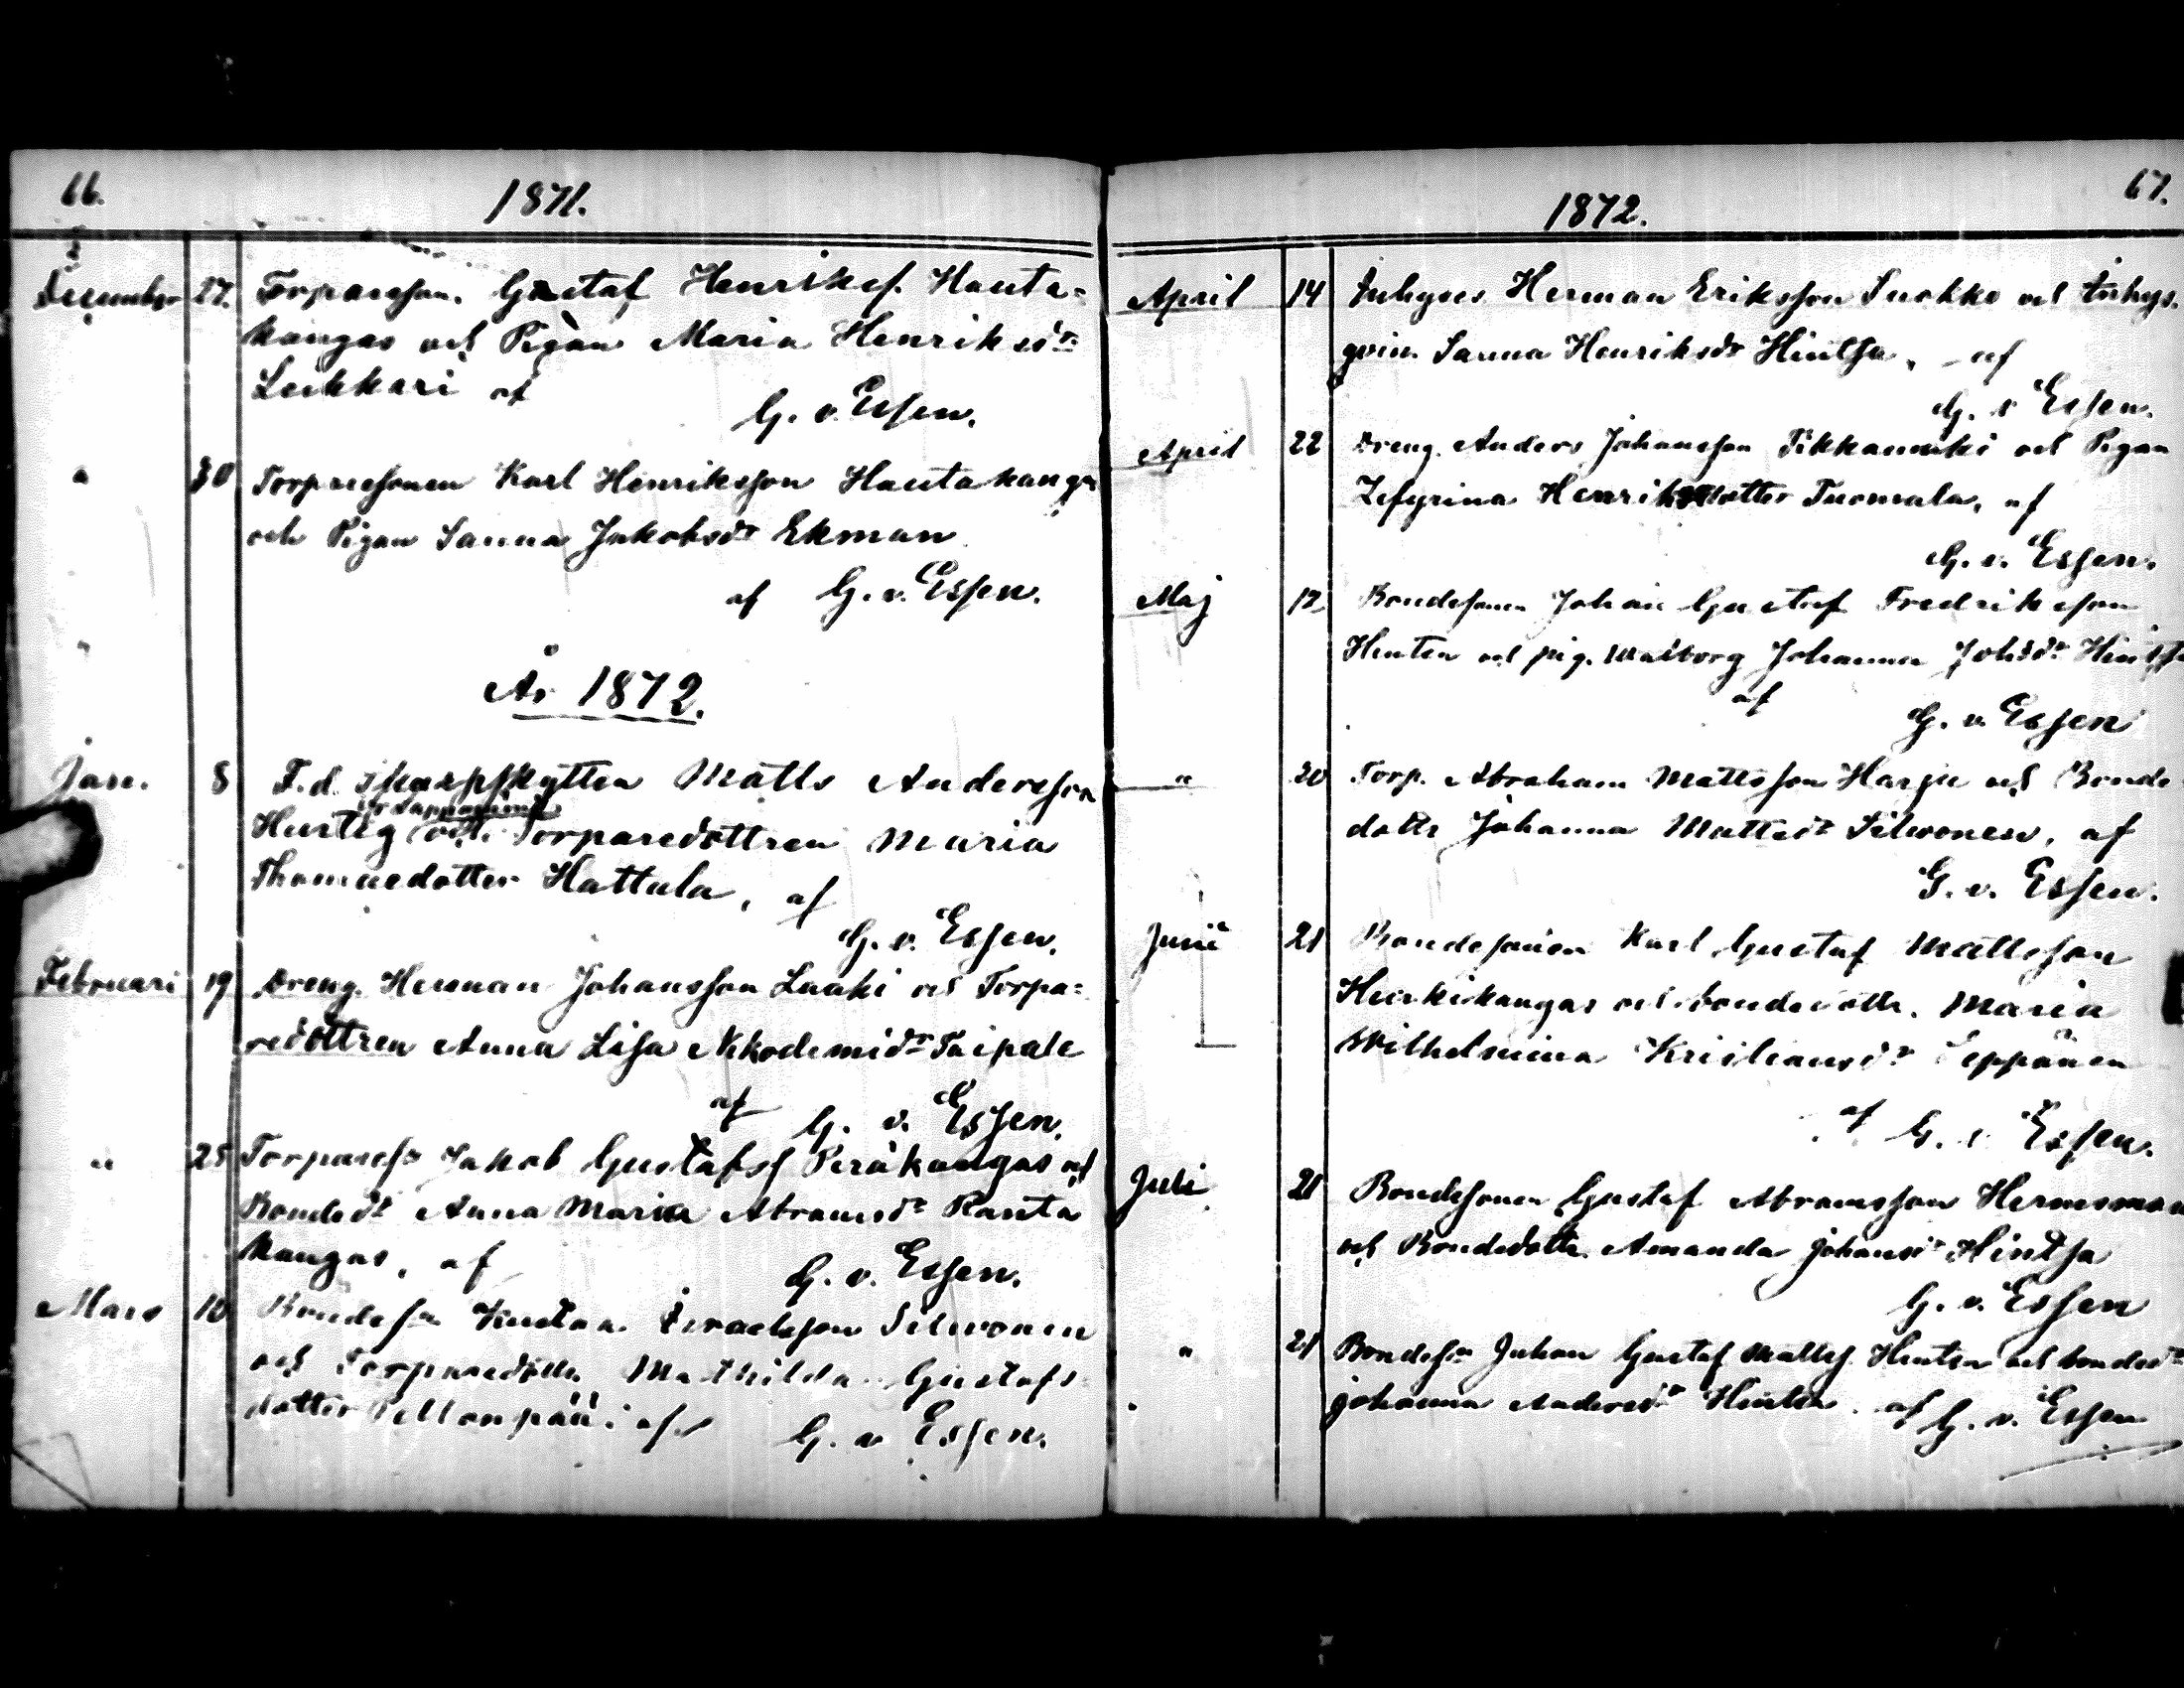 66.
1871.
December 27. Torpareson. Gustaf Henriksf. Hauta=
kangas och Pigan Maria Henriksdr
Leikkari af
G. v. Essen.
" 30 Torparesonen Karl Henriksson Hautakangas
och Pigan Sanna Jakobsdr Ekman
af G. v. Essen.
År 1872.
Jan. 8 F.d. Skarpskytten Matts Andersson
Hurtig och Torparedottren Maria
Thomasdotter Hattula, af
G. v. Essen.
Februari 19 Dreng. Herman Johansson Laaki och Torpa=
redottren Anna Lisa Nikodemidr Taipale
af G. v. Essen.
" 25 Torparesn Jakob Gustafsf Peräkangas och
Bondedr Anna Maria Abramsdr Ranta
kangas, af G. v. Essen.
Mars 10 Bondesn Kustaa Israelsson Silwonen
och Torparedottr Mathilda Gustafs
dotter Pellonpää: af G. v. Essen.
67.
1872.
April 14 Inhyses Herman Eriksson Suokko och Inhys
qvin. Sanna Henriksdr Hintsa, af
G. v Essen.
April 22 Dreng. Anders Johansson Tikkamäki och Pigan
Zefyrina Henriksdotter Tuomala, af
G. v. Essen.
Maj 12 Bondesonen Johan Gustaf Fredriksson
Hinten och pig. Walborg Johanna Johsdr Hintsa
af G. v. Essen
" 20 Torp. Abraham Mattsson Harju och Bonde
dottr Johanna Mattsdr Silwonen, af
G. v. Essen.
Junii 21 Bondesonen Karl Gustaf Mattsson
kangas och bondedottr. Maria
Wilhelmina Kristiansdr Seppänen
af G. v Essen.
Juli 21 Bondesonen Gustaf Abramsson Hernesmaa
och Bondedottr. Amanda Johansdr Hintsa
G. v. Essen
" 21 Bondesn Johan Gustaf Mattsf. Hinten och bondedr
Johanna Andersdr Hinten. af G. v. Essen